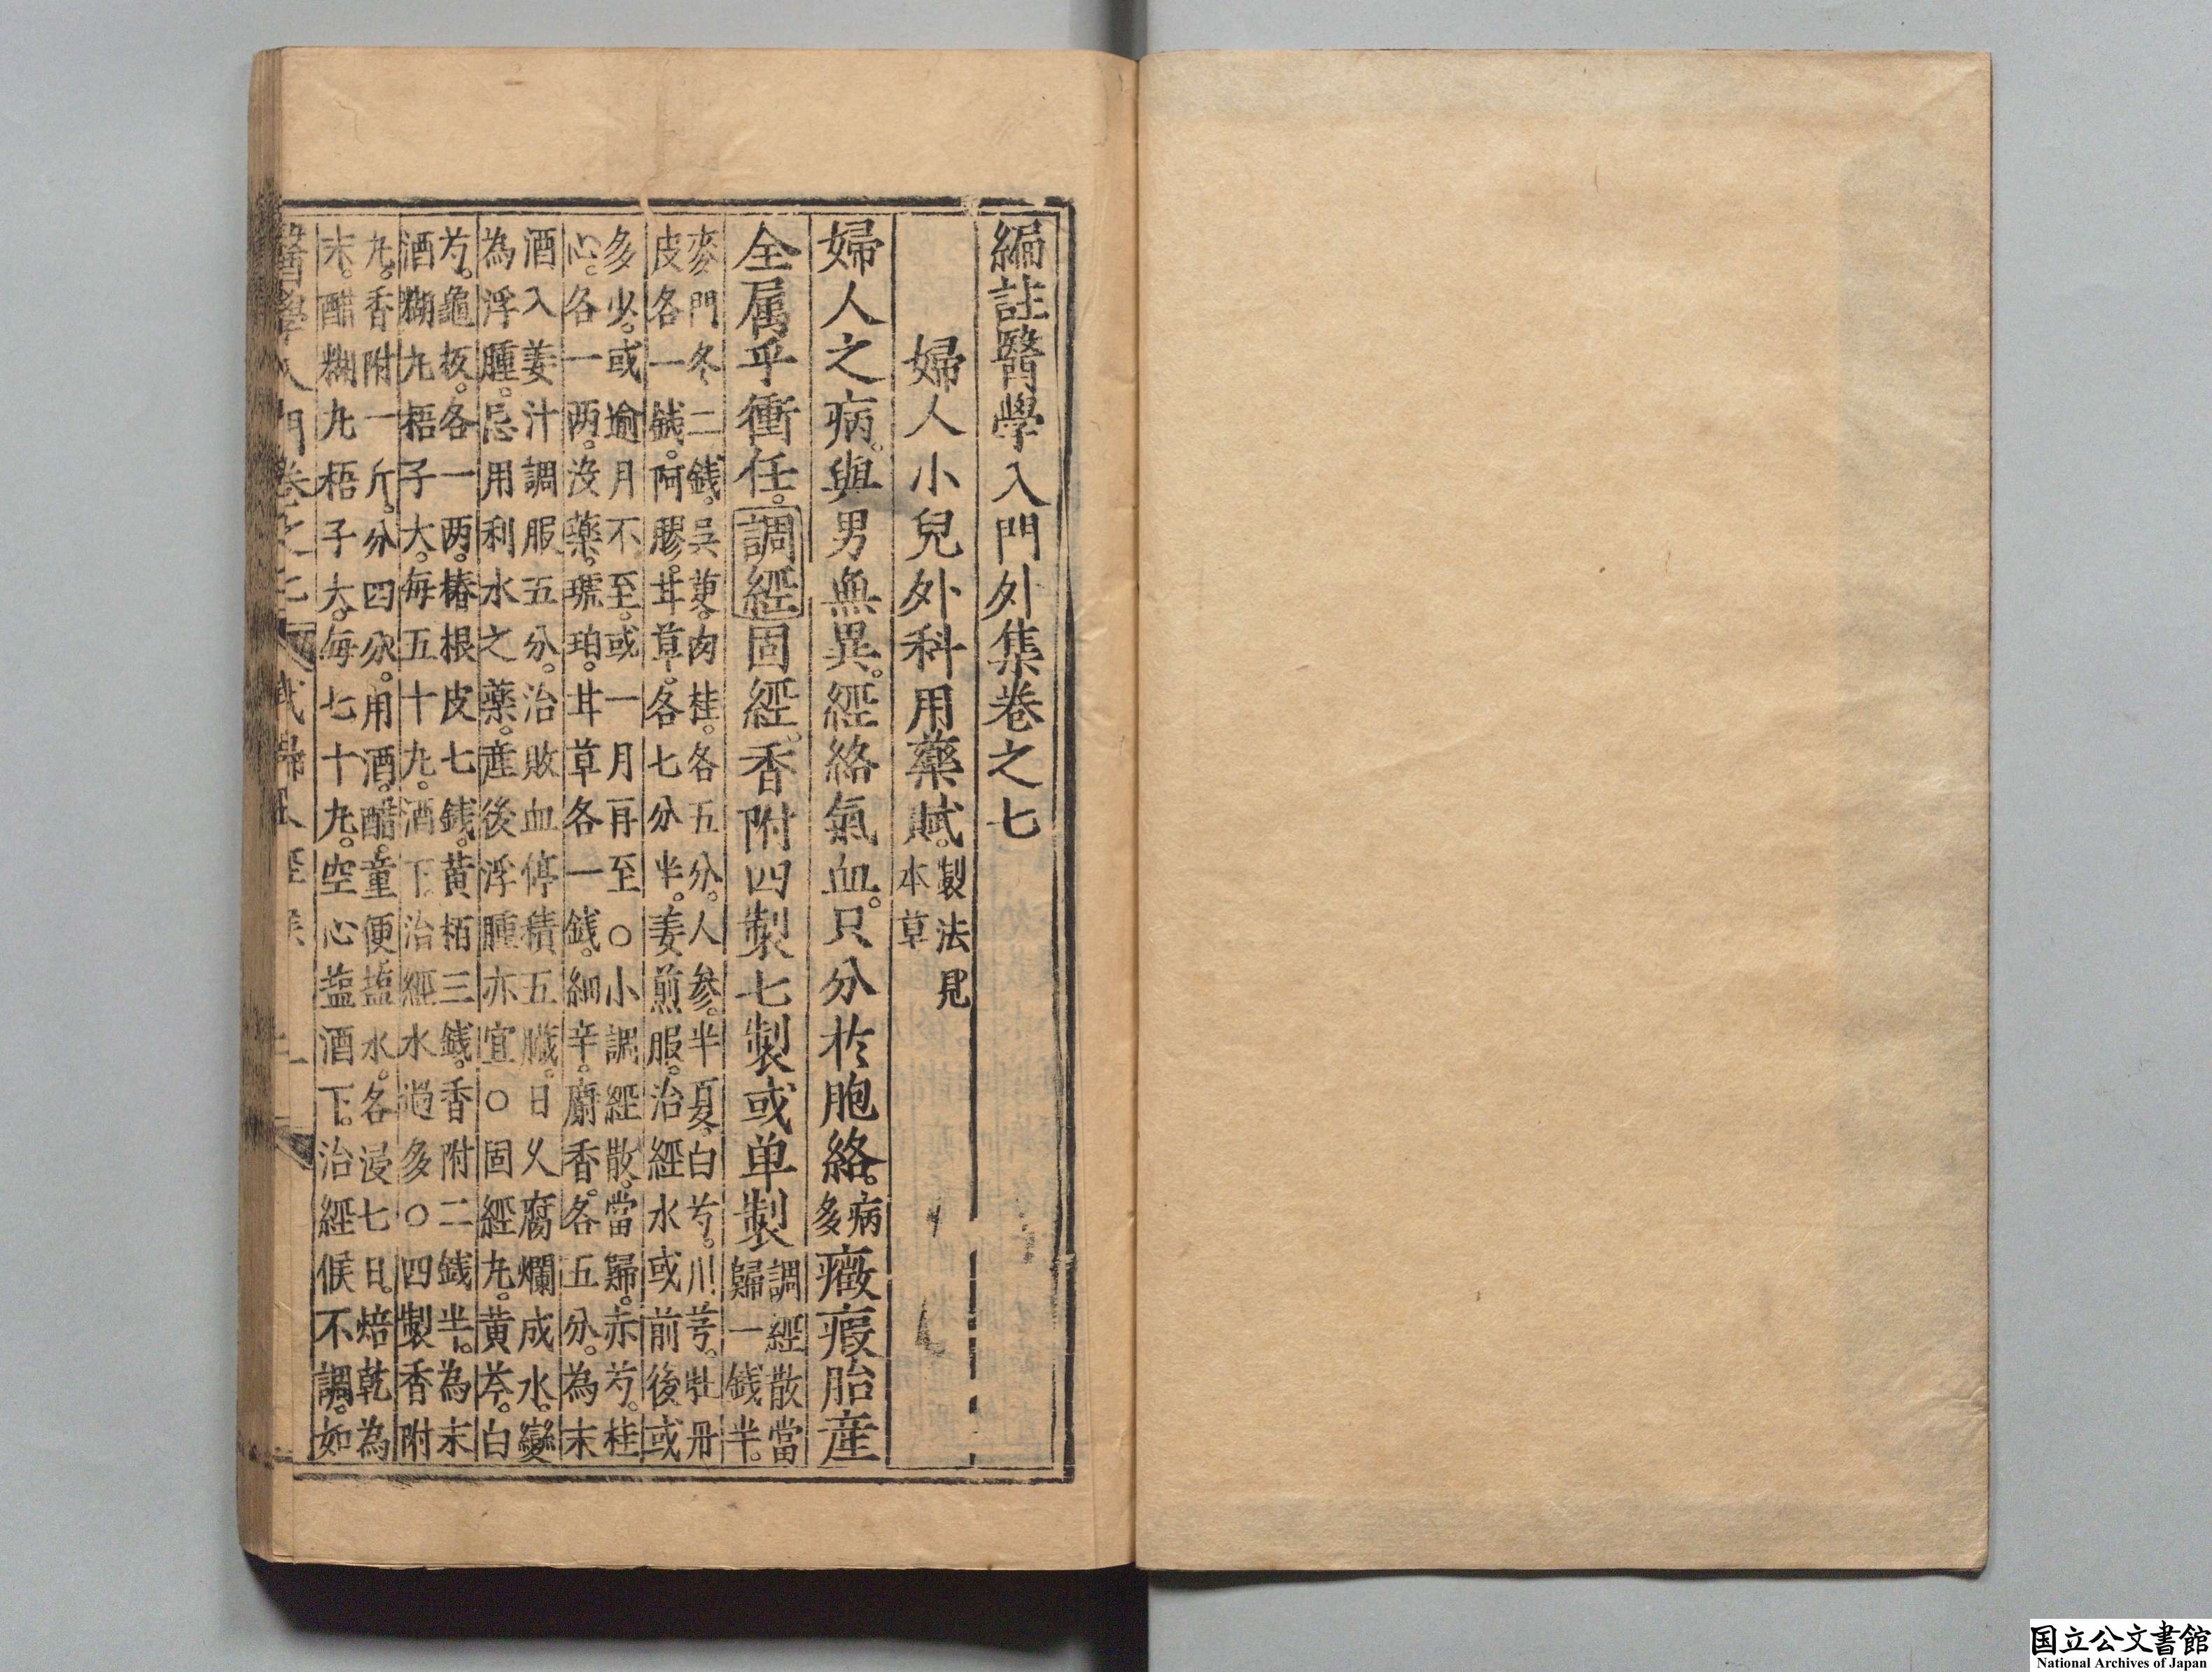 編註醫學入門外集卷之七
婦人小兒外科用藥賦。製法見
本草
婦人之病。與男無異。經絡氣血。只分於胞絡。病
多癥瘕胎産
全属乎衝任。調經固經。香附四製七製或单製調經散當
歸一錢半。
麥門冬二錢。吳茰。肉桂。各五分。人參。半夏。白芍。川芎。牡丹
皮各一錢。阿膠。甘草。各七分半。姜煎服。治經水或前後或
多少。或逾月不至。或一月再至○小調經散。當歸。赤芍。桂
心。各一两。没藥。琥珀。甘草各一錢。細辛。麝香。各五分。為末
酒入姜汁調服五分。治敗血停積五臟。日久腐爛成水。變
為浮腫。忌用利水之藥。産後浮腫亦宜○固經丸。黄芩。白
芍。龜板。各一两。椿根皮七錢。黄栢三錢。香附二錢半。為末
酒糊丸梧子大。每五十丸。酒下。治經水過多○四製香附
丸。香附一斤。分四分。用酒。醋。童便。塩水。各浸七日。焙乾為
末。醋糊丸梧子大。每七十丸。空心塩酒下。治經候不調。如
醫學入門卷之七
国立公文書館
National Archives of Japan